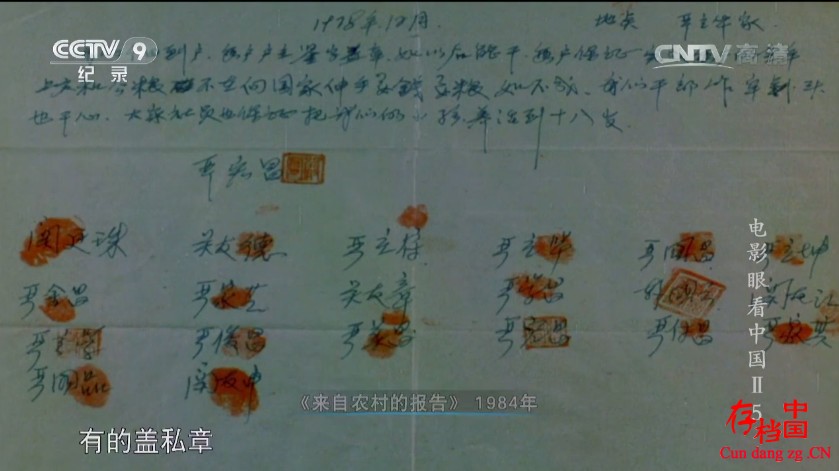 CCTV 9
纪录
CNTV 高清
1978年12月. 地点 严立华家
到户, 每户户主签字盖章, 如以后能干, 每户保证
上交和公粮 不在向国家伸手要钱要粮 如不成, 我们干部作牢刹头
也干心, 大家社员也保证把我们的小孩养活到十八岁.
严宏昌
关廷珠 关友德 严立符 严立华 严国昌 严立坤
严金昌 严家芝 关友章 严学昌 韩国云 关友江
严立学 严俊昌 严美昌 严宏昌 严付昌 严家其
严国品 关友申
电影眼看中国Ⅱ 5
《来自农村的报告》 1984年
有的盖私章
存档中国
Cun dang zg .CN